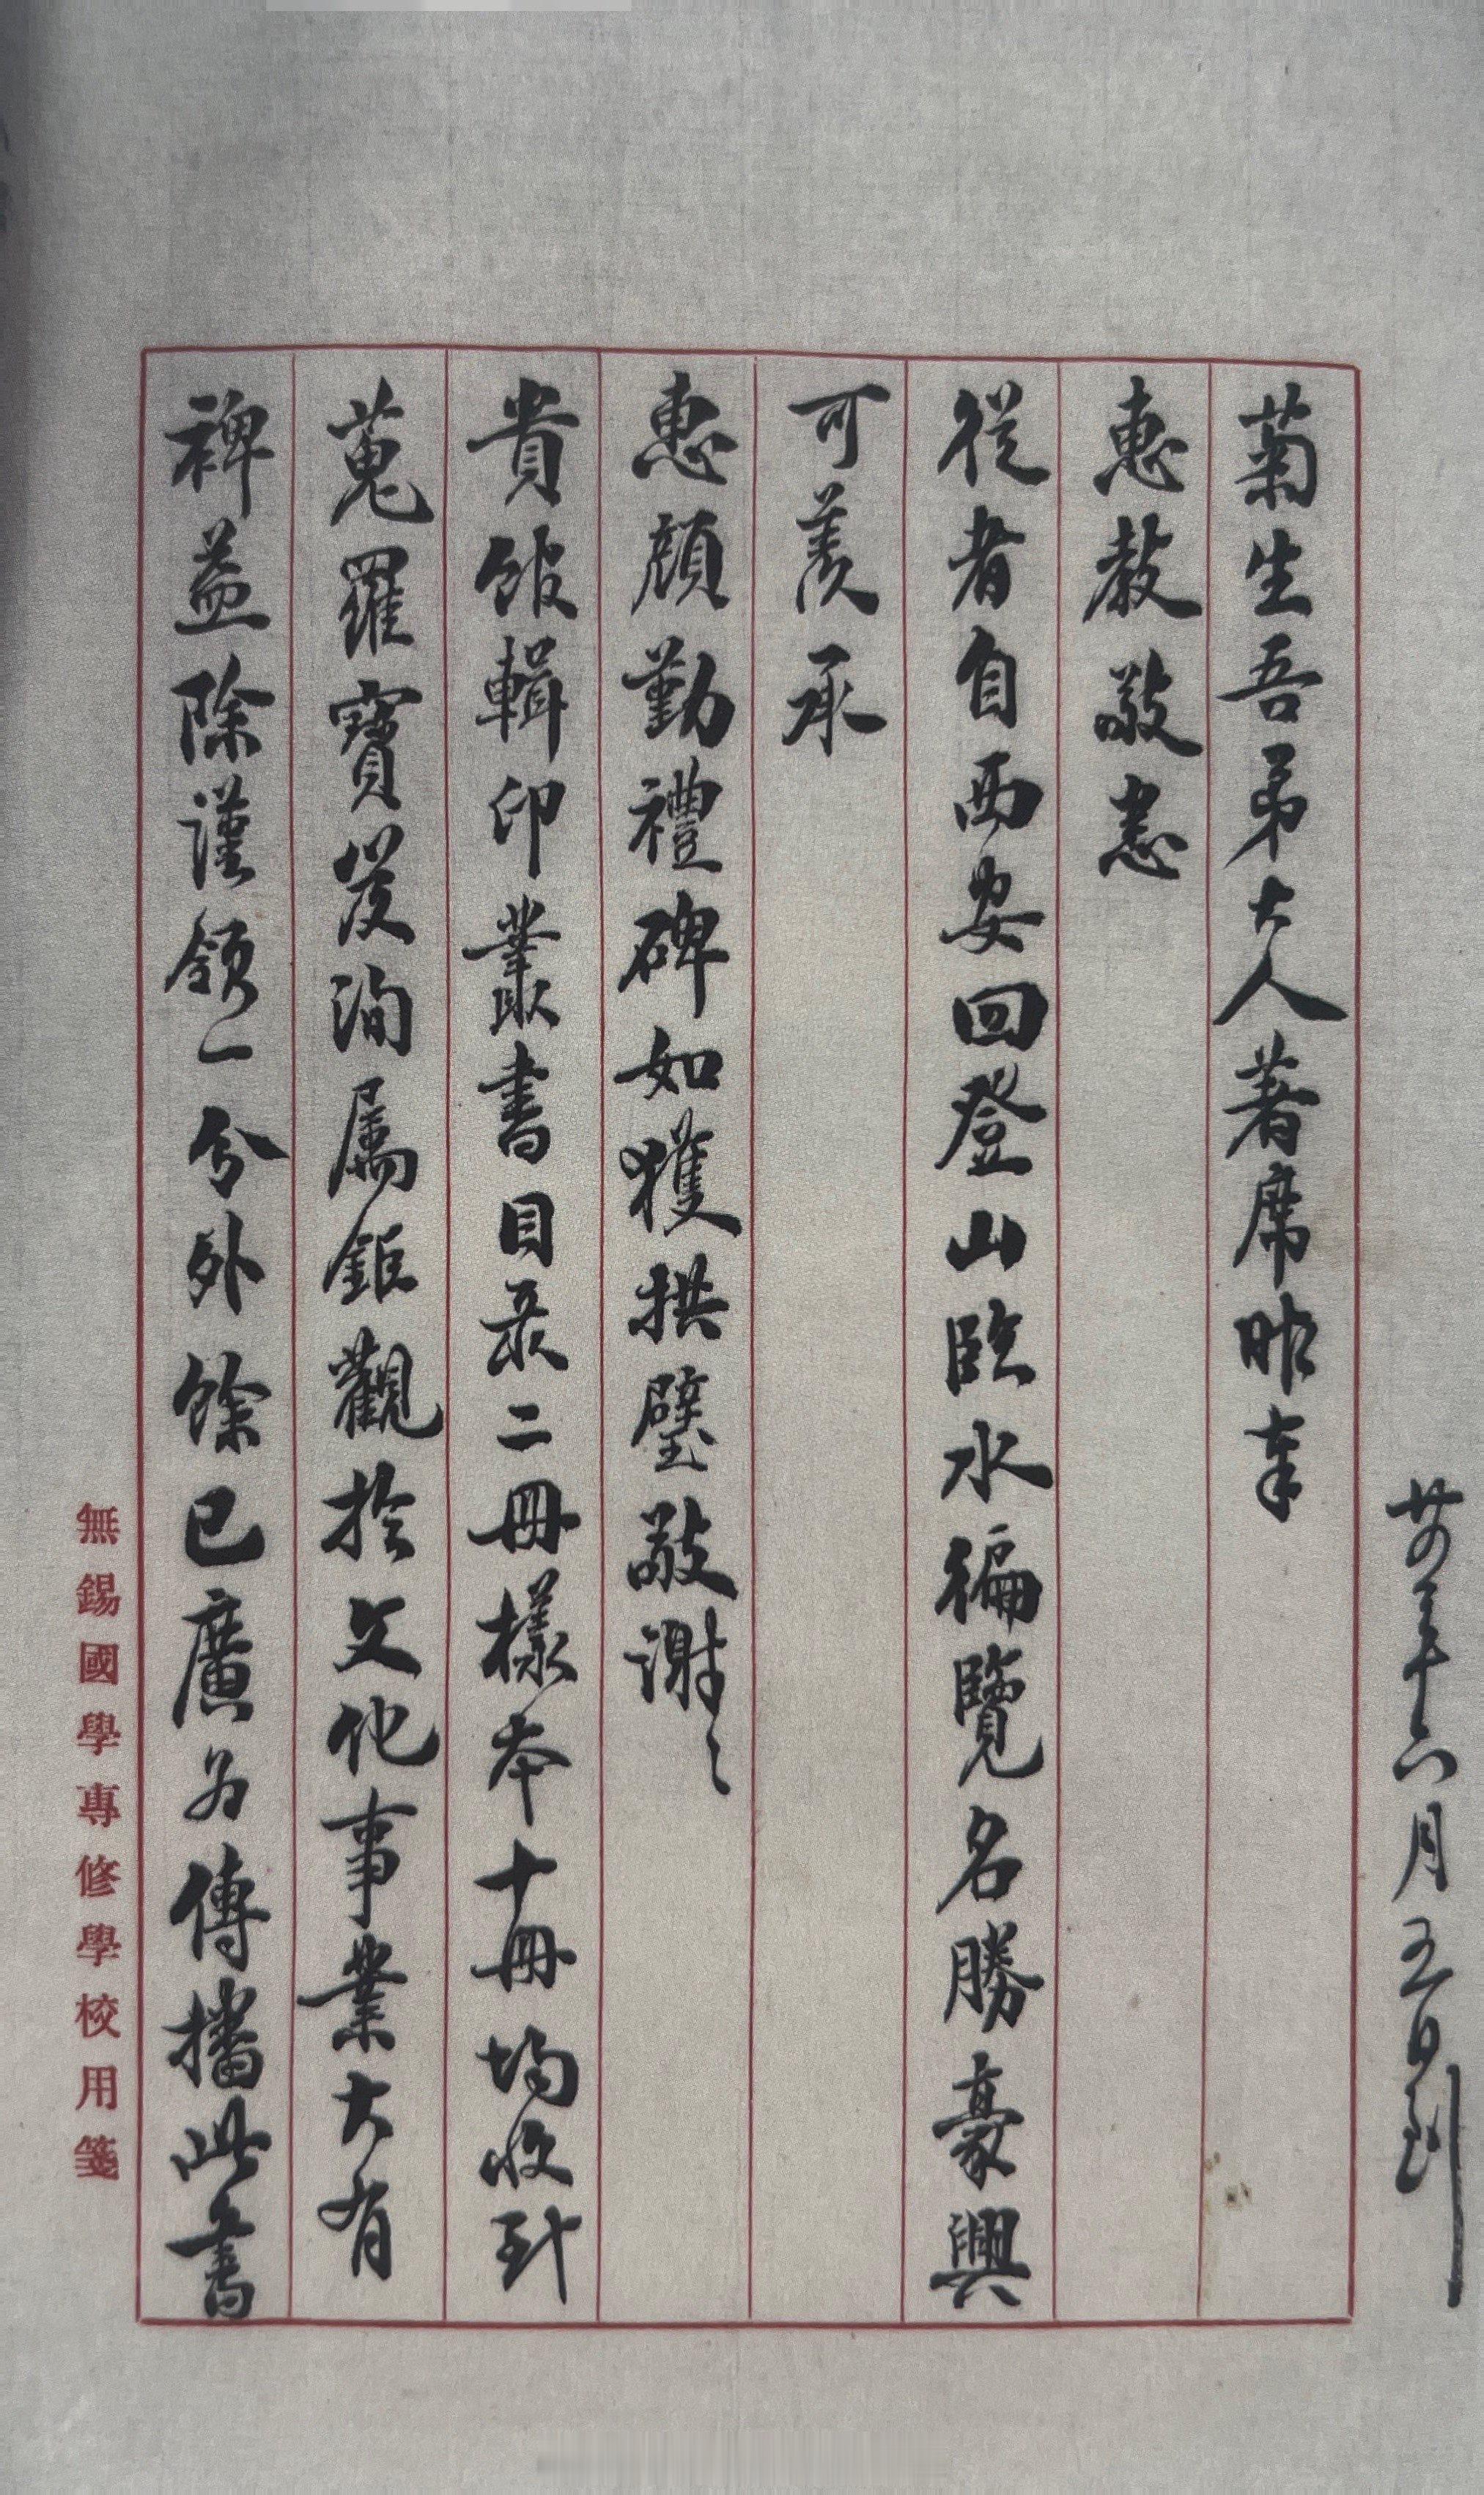 廿四年六月五日到
菊生吾弟大人著席昨奉
惠教敬悉
從者自西安回登山臨水徧覽名勝豪興
可羨承
惠顏勤禮碑如獲拱璧敬謝〻
貴館輯印叢書目录二冊樣本十冊均收到
蒐羅寶笈洵屬鉅觀於文化事業大有
裨益除謹領一分外餘已廣為傳播此書
無錫國學專修學校用箋